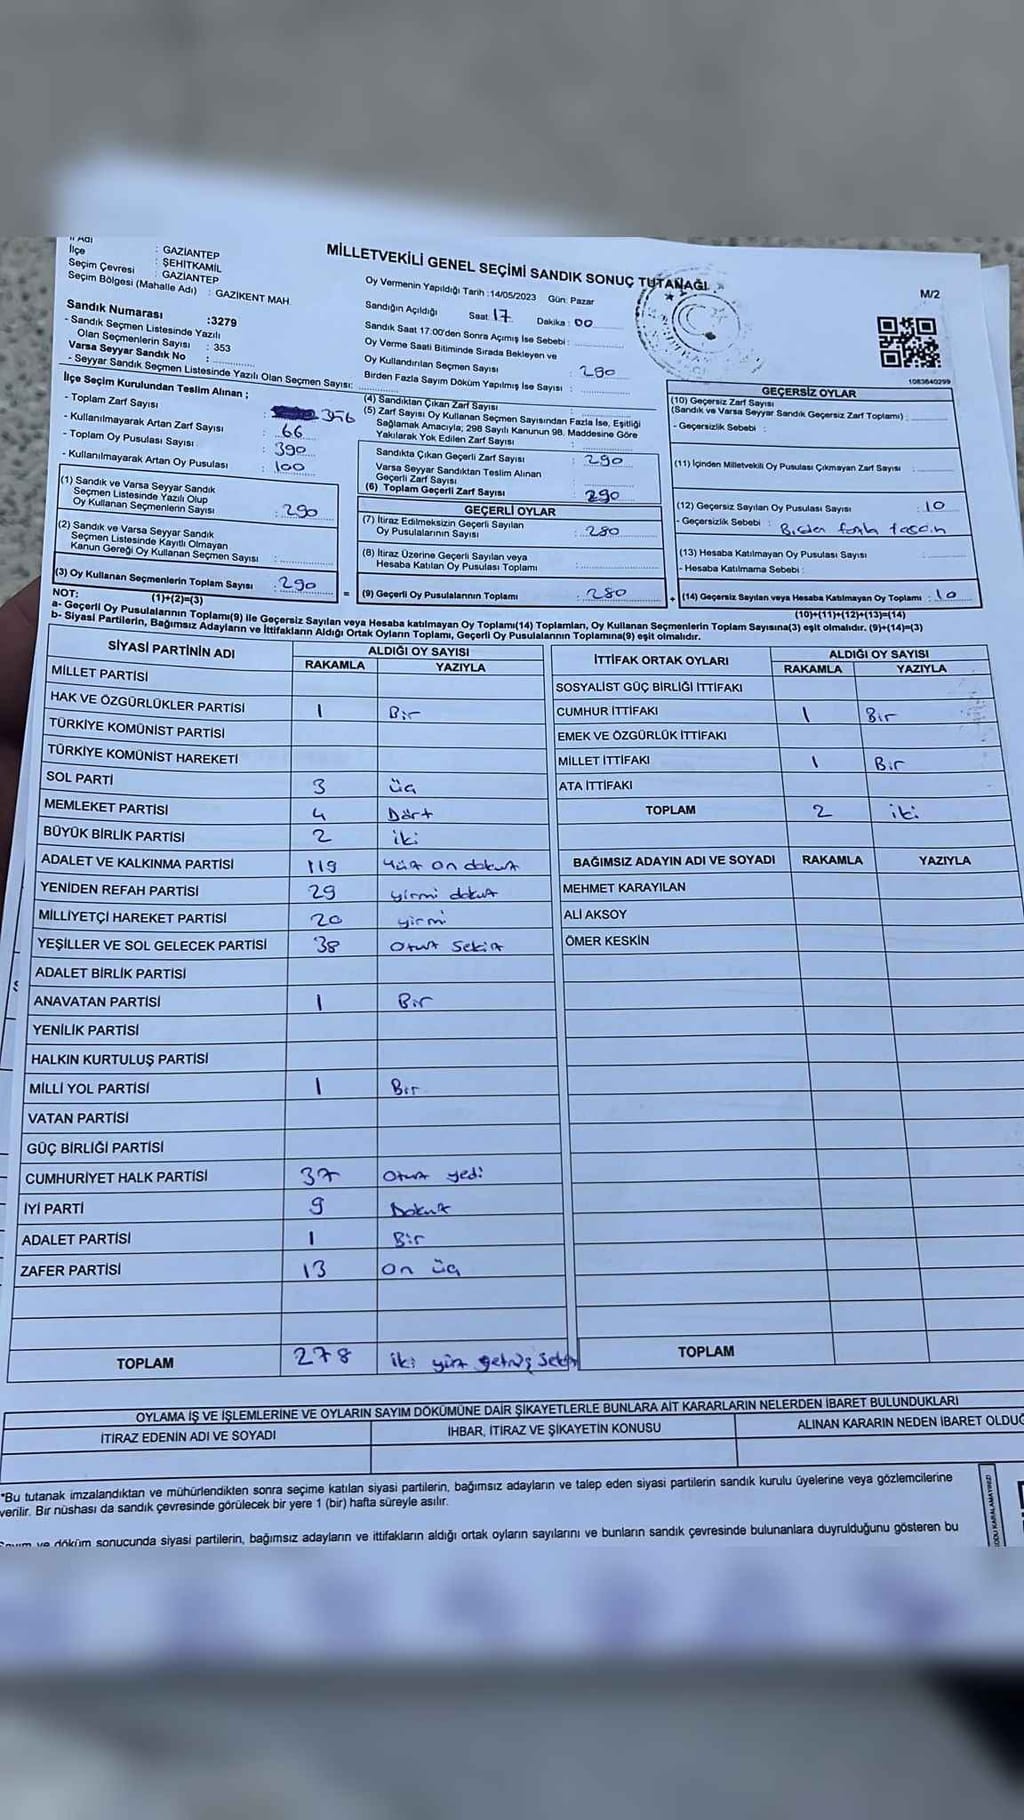 İl Adı
İlçe : GAZİANTEP
Seçim Çevresi : ŞEHİTKAMİL
Seçim Bölgesi (Mahalle Adı) : GAZİANTEP
: GAZİKENT MAH.
MİLLETVEKİLİ GENEL SEÇİMİ SANDIK SONUÇ TUTANAĞI
M/2
1083640299
Sandık Numarası :3279
- Sandık Seçmen Listesinde Yazılı
Olan Seçmenlerin Sayısı : 353
Varsa Seyyar Sandık No :
- Seyyar Sandık Seçmen Listesinde Yazılı Olan Seçmen Sayısı:
Oy Vermenin Yapıldığı Tarih :14/05/2023 Gün: Pazar
Sandığın Açıldığı Saat: 17 Dakika : 00
Sandık Saat 17:00'den Sonra Açımış İse Sebebi :
Oy Verme Saati Bitiminde Sırada Bekleyen ve
Oy Kullandırılan Seçmen Sayısı : 290
Birden Fazla Sayım Döküm Yapılmış İse Sayısı :
İlçe Seçim Kurulundan Teslim Alınan ;
- Toplam Zarf Sayısı : 356
- Kullanılmayarak Artan Zarf Sayısı : 66
- Toplam Oy Pusulası Sayısı : 390
- Kullanılmayarak Artan Oy Pusulası : 100
(1) Sandık ve Varsa Seyyar Sandık
Seçmen Listesinde Yazılı Olup
Oy Kullanan Seçmenlerin Sayısı : 290
(2) Sandık ve Varsa Seyyar Sandık
Seçmen Listesinde Kayıtlı Olmayan
Kanun Gereği Oy Kullanan Seçmen Sayısı :
(3) Oy Kullanan Seçmenlerin Toplam Sayısı : 290
(1)+(2)=(3)
(4) Sandıktan Çıkan Zarf Sayısı :
(5) Zarf Sayısı Oy Kullanan Seçmen Sayısından Fazla İse, Eşitliği
Sağlamak Amacıyla; 298 Sayılı Kanunun 98. Maddesine Göre
Yakılarak Yok Edilen Zarf Sayısı
Sandıkta Çıkan Geçerli Zarf Sayısı : 290
Varsa Seyyar Sandıktan Teslim Alınan
Geçerli Zarf Sayısı :
(6) Toplam Geçerli Zarf Sayısı : 290
GEÇERLİ OYLAR
(7) İtiraz Edilmeksizin Geçerli Sayılan
Oy Pusulalarının Sayısı : 280
(8) İtiraz Üzerine Geçerli Sayılan veya
Hesaba Katılan Oy Pusulası Toplamı :
= (9) Geçerli Oy Pusulalarının Toplamı : 280
GEÇERSİZ OYLAR
(10) Geçersiz Zarf Sayısı
(Sandık ve Varsa Seyyar Sandık Geçersiz Zarf Toplamı) :
- Geçersizlik Sebebi :
(11) İçinden Milletvekili Oy Pusulası Çıkmayan Zarf Sayısı :
(12) Geçersiz Sayılan Oy Pusulası Sayısı : 10
- Geçersizlik Sebebi : Birden fazla
(13) Hesaba Katılmayan Oy Pusulası Sayısı :
- Hesaba Katılmama Sebebi :
+ (14) Geçersiz Sayılan veya Hesaba Katılmayan Oy Toplamı : 10
(10)+(11)+(12)+(13)=(14)
NOT:
a- Geçerli Oy Pusulalarının Toplamı(9) ile Geçersiz Sayılan veya Hesaba katılmayan Oy Toplamı(14) Toplamları, Oy Kullanan Seçmenlerin Toplam Sayısına(3) eşit olmalıdır. (9)+(14)=(3)
b- Siyasi Partilerin, Bağımsız Adayların ve İttifakların Aldığı Ortak Oyların Toplamı, Geçerli Oy Pusulalarının Toplamına(9) eşit olmalıdır.
SİYASİ PARTİNİN ADI ALDIĞI OY SAYISI
RAKAMLA YAZIYLA
MİLLET PARTİSİ
HAK VE ÖZGÜRLÜKLER PARTİSİ 1 Bir
TÜRKİYE KOMÜNİST PARTİSİ
TÜRKİYE KOMÜNİST HAREKETİ
SOL PARTİ 3 üç
MEMLEKET PARTİSİ 4 Dört
BÜYÜK BİRLİK PARTİSİ 2 iki
ADALET VE KALKINMA PARTİSİ 119 Yüz on dokuz
YENİDEN REFAH PARTİSİ 29 yirmi dokuz
MİLLİYETÇİ HAREKET PARTİSİ 20 yirmi
YEŞİLLER VE SOL GELECEK PARTİSİ 38 Otuz Sekiz
ADALET BİRLİK PARTİSİ
ANAVATAN PARTİSİ 1 Bir
YENİLİK PARTİSİ
HALKIN KURTULUŞ PARTİSİ
MİLLİ YOL PARTİSİ 1 Bir
VATAN PARTİSİ
GÜÇ BİRLİĞİ PARTİSİ
CUMHURİYET HALK PARTİSİ 37 Otuz yedi
İYİ PARTİ 9 Dokuz
ADALET PARTİSİ 1 Bir
ZAFER PARTİSİ 13 On üç
TOPLAM 278 iki yüz yetmiş sekiz
İTTİFAK ORTAK OYLARI ALDIĞI OY SAYISI
RAKAMLA YAZIYLA
SOSYALİST GÜÇ BİRLİĞİ İTTİFAKI
CUMHUR İTTİFAKI 1 Bir
EMEK VE ÖZGÜRLÜK İTTİFAKI
MİLLET İTTİFAKI 1 Bir
ATA İTTİFAKI
TOPLAM 2 iki
BAĞIMSIZ ADAYIN ADI VE SOYADI RAKAMLA YAZIYLA
MEHMET KARAYILAN
ALİ AKSOY
ÖMER KESKİN
TOPLAM
OYLAMA İŞ VE İŞLEMLERİNE VE OYLARIN SAYIM DÖKÜMÜNE DAİR ŞİKAYETLERLE BUNLARA AİT KARARLARIN NELERDEN İBARET BULUNDUKLARI
İTİRAZ EDENİN ADI VE SOYADI İHBAR, İTİRAZ VE ŞİKAYETİN KONUSU ALINAN KARARIN NEDEN İBARET OLDUĞ
*Bu tutanak imzalandıktan ve mühürlendikten sonra seçime katılan siyasi partilerin, bağımsız adayların ve talep eden siyasi partilerin sandık kurulu üyelerine veya gözlemcilerine
verilir. Bir nüshası da sandık çevresinde görülecek bir yere 1 (bir) hafta süreyle asılır.
ve döküm sonucunda siyasi partilerin, bağımsız adayların ve ittifakların aldığı ortak oyların sayılarını ve bunların sandık çevresinde bulunanlara duyrulduğunu gösteren bu